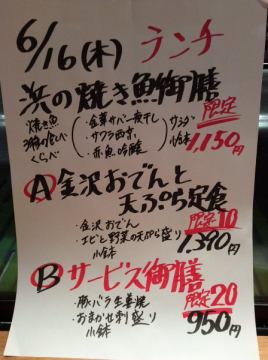 6/16(木) ランチ
浜の焼き魚御膳
焼き魚
3種の食べ
くらべ
・金華サバ一夜干し
・サワラ西京
・赤魚吟醸
サラダ
小鉢
限定
1,150円
A 金沢おでんと
天ぷら定食
・金沢おでん
・エビと野菜の天ぷら盛り
・小鉢
限定10
1,390円
B サービス御膳
・豚バラ生姜焼
・おまかせ刺盛り
・小鉢
限定20
950円